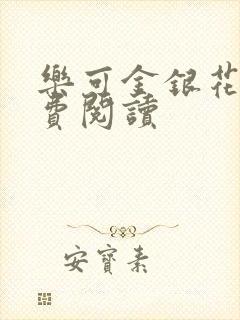 樂可金銀花
費閱讀
安寶素